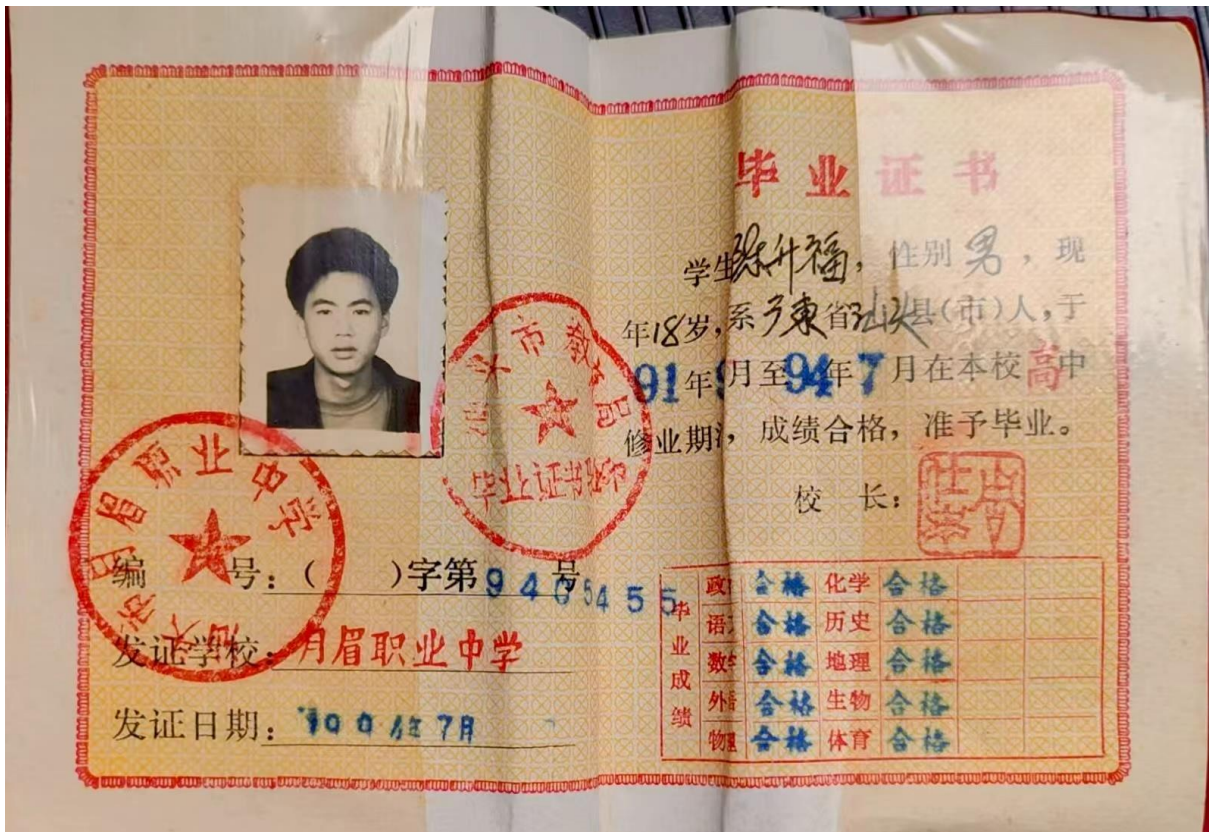 毕业证书
学生陈升福，性别男，现
年18岁，系广東省汕头县(市)人，于
91年9月至94年7月在本校高中
修业期满，成绩合格，准予毕业。
校 长：
汕头市教育局
汕头市月眉职业中学
编 号：( )字第9405455号
发证学校：月眉职业中学
发证日期：1994年7月
毕业成绩
政 合格 化学 合格
语 合格 历史 合格
数学 合格 地理 合格
外 合格 生物 合格
物理 合格 体育 合格